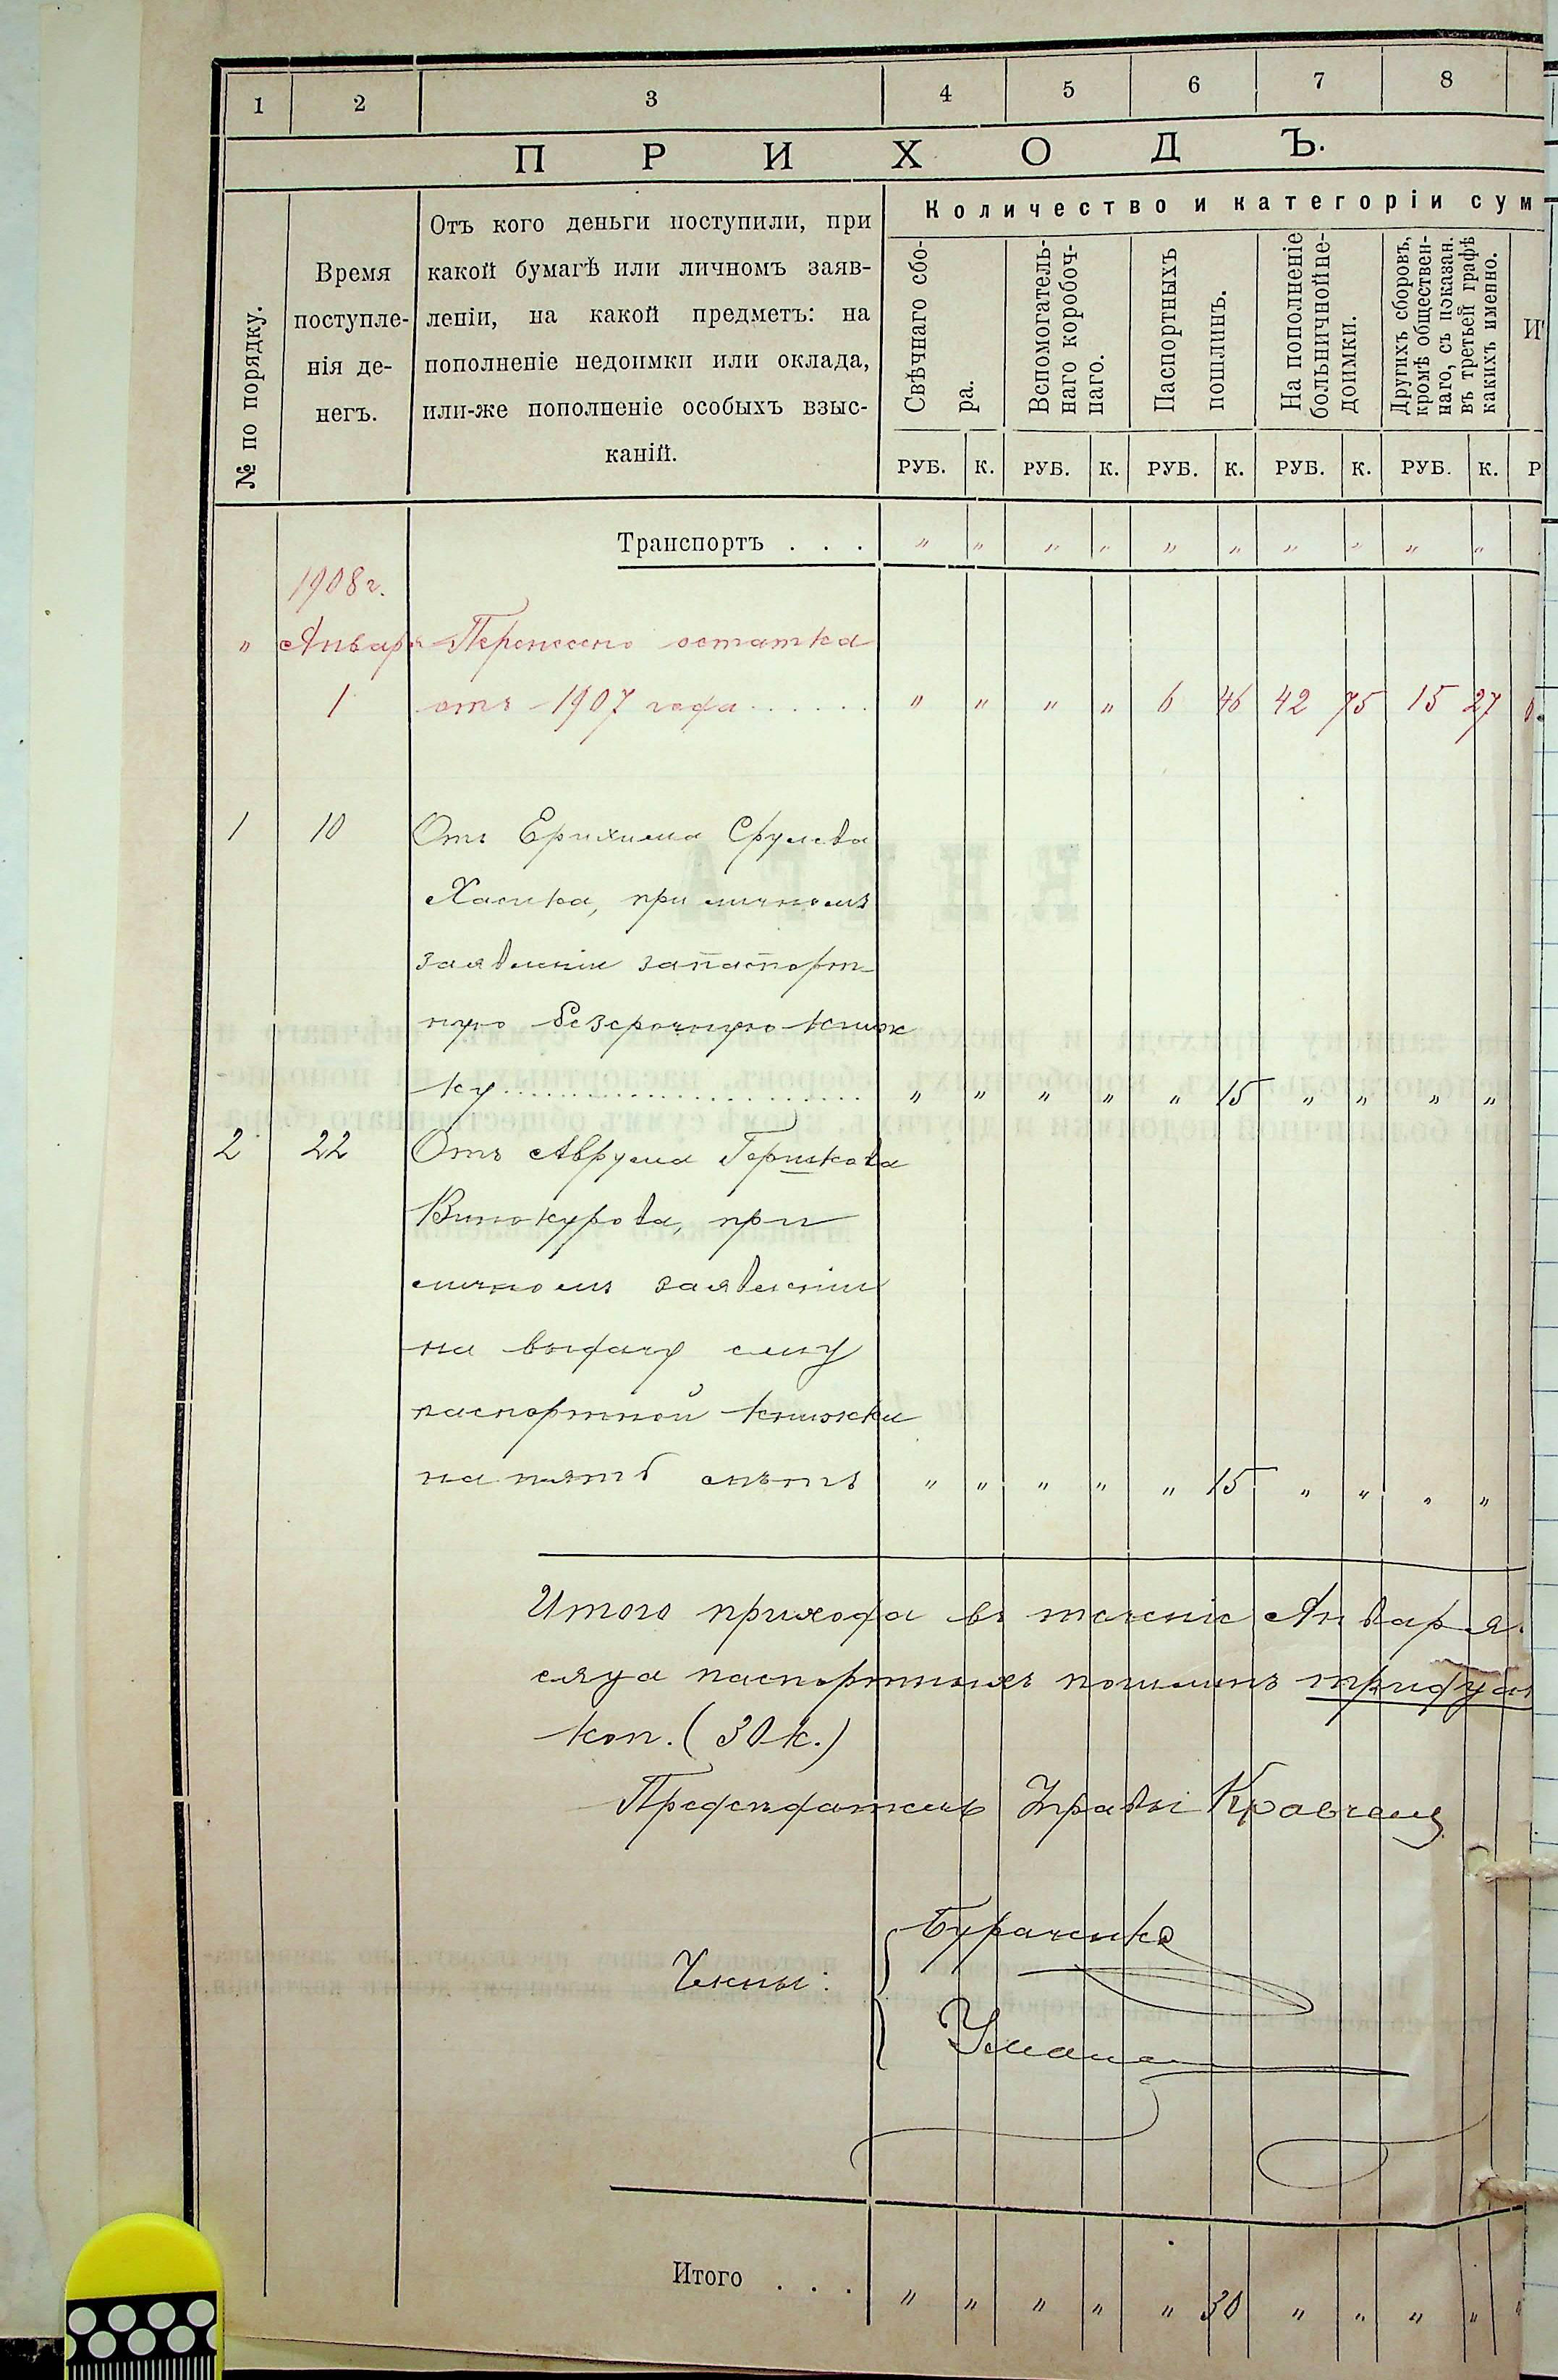 1 2 3 4 5 6 7 8
ПРИХОДЪ.
№ по порядку.
Время
поступле-
нія де-
негъ.
Отъ кого деньги поступили, при
какой бумагѣ или личномъ заяв-
леніи, на какой предметъ: на
пополненіе недоимки или оклада,
или-же пополненіе особыхъ взыс-
каній.
Количество и категоріи сум
Свѣчнаго сбо-
ра.
Вспомогатель-
наго коробоч-
наго.
Паспортныхъ
пошлинъ.
На пополненіе
больничной не-
доимки.
Другихъ сборовъ,
кромѣ обществен-
наго, съ показан.
въ третьей графѣ
какихъ именно.
И
РУБ. К. РУБ. К. РУБ. К. РУБ. К. РУБ. К. Р
Транспортъ . . . " " " " " " " " " "
1908 г.
" Января Перенесено остатка
1 отъ 1907 года...... " " " " 6 46 42 75 15 27
1 10 Отъ Ерихима Срулева
Хасика, при личномъ
заявленіи за паспорт-
ную безсрочную книж
ку...................... " " " " " 15 " " " "
2 22 Отъ Аврума Гершкова
Винокурова, при
личномъ заявленіи
на выдачу ему
паспортной книжки
на пять лѣтъ " " " " " 15 " " " "
Итого прихода въ теченіе Января
сяца паспортныхъ пошлинъ тридцать
коп. (30 к.)
Предсѣдатель Управы Кравченко
Члены:
Бураченко
Умане
Итого . . . " " " " " 30 " " " "